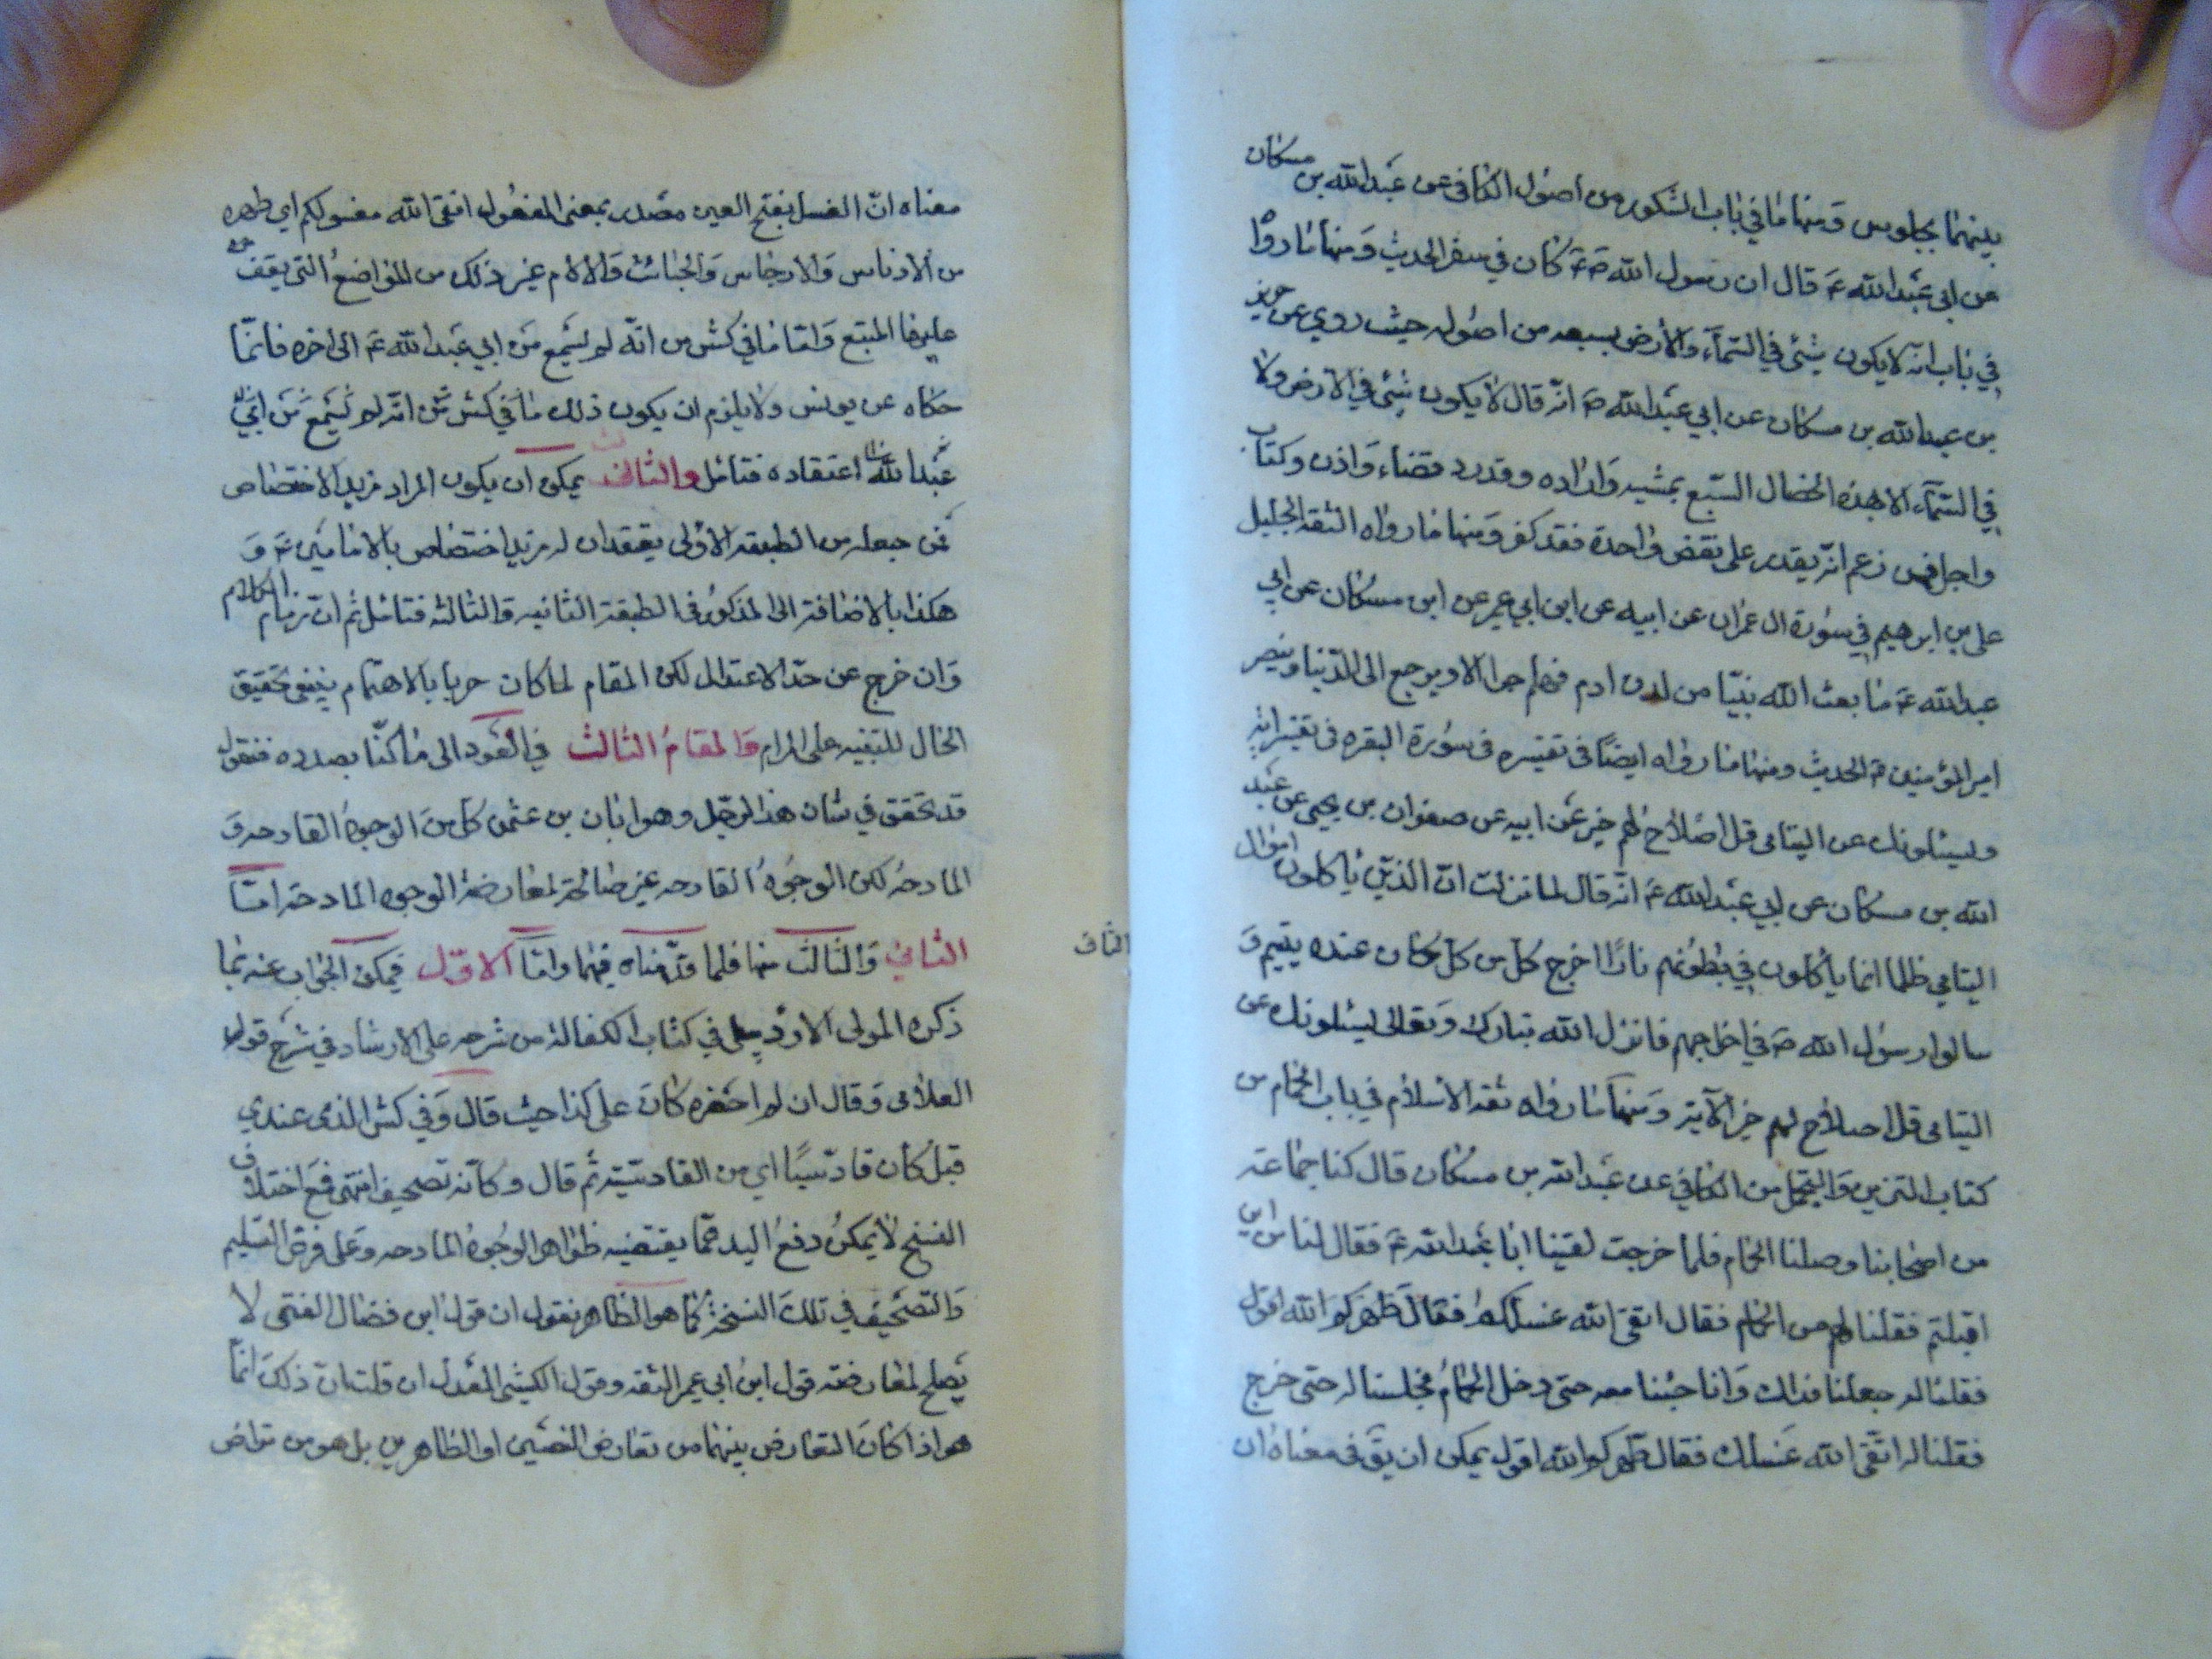 بينهما بجلوس ومنها ما في باب الشكور من اصول الكافى عن عبد الله بن مسكان
عن ابى عبد الله ع قال ان رسول الله ص ع كان في سفر الحديث ومنها ما رواه
في باب انه لا يكون شئ في السماء والأرض بسبعه من اصوله حيث روي عن حريز
بن عبد الله بن مسكان عن ابي عبد الله ع انه قال لا يكون شئ في الارض ولا
في السماء الا بهذه الخصال السبع بمشيه واراده وقدر وقضاء واذن وكتاب
واجل فمن زعم انه يقدر على نقض واحدة فقد كفر ومنها ما رواه الثقه الجليل
علي بن ابرهيم في سورة ال عمران عن ابيه عن ابن ابي عمير عن ابن مسكان عن ابي
عبد الله ع ما بعث الله نبيا من لدن ادم فهلم جرا الا ويرجع الى الدنيا وينصر
امير المؤمنين ع الحديث ومنها ما رواه ايضا فى تفسيره فى سورة البقره فى تفسير اية
ويسئلونك عن اليتامى قل اصلاح لهم خير عن ابيه عن صفوان بن يحيى عن عبد
الله بن مسكان عن ابي عبد الله ع انه قال لما نزلت ان الذين يأكلون اموال
اليتامي ظلما انما يأكلون في بطونهم نارا اخرج كل من كل من كان عنده يتيم و
سالوا رسول الله ص في اخراجهم فانزل الله تبارك وتعالى يسئلونك عن
اليتامى قل اصلاح لهم خير الآية ومنها ما رواه ثقه الاسلام في باب الحمام من
كتاب التزين والتجمل من الكافي عن عبد الله بن مسكان قال كنا جماعة
من اصحابنا وصلنا الحمام فلما خرجت لقينا ابا عبد الله ع فقال لنا من اين
اقبلتم فقلنا لهم من الحمام فقال انقى الله غسلكم فقال طهركم الله اقول
فقلنا له جعلنا فداك وانا جئنا معه حتى دخل الحمام فجلسنا له حتى خرج
فقلنا له انقى الله غسلك فقال طهركم الله اقول يمكن ان يق فى معناه ان
معناه ان الغسل بفتح العين مصدر بمعنى المفعول انقى الله مغسولكم اي طهره
من الادناس والارجاس والخبائث والالام غير ذلك من المواضع التى يقف
عليها المتبع واما ما في كش من انه لم يسمع من ابي عبد الله ع الى اخره فانما
حكاه عن يونس ولا يلزم ان يكون ذلك ما في كش من انه لم يسمع من ابي
عبد الله اعتقاده فتامل والثالث يمكن ان يكون المراد مزيد الاختصاص
فمن جعله من الطبقه الاولى يعتقد ان له مزيد اختصاص بالامامين ع و
هكذا بالاضافة الى المذكور فى الطبقة الثانيه والثالثه فتامل ثم ان زمام الكلام
وان خرج عن حد الاعتدال لكن المقام لما كان حريا بالاهتمام ينبغى تحقيق
الحال للتنبيه على المرام والمقام الثالث في العود الى ما كنا بصدده فنقول
قد تحقق في شان هذا الرجل وهو ابان بن عثمن كل من الوجوه القادحه و
المادحه لكن الوجوه القادحه غير صالحة لمعارضة الوجوه المادحة اما
الثانى
الثاني والثالث منها فلما قدمناه فيهما واما الاول فيمكن الجواب عنه بما
ذكره المولى الاردبيلى في كتاب الكفالة من شرحه على الارشاد في شرح قول
العلامى وقال ان لم احضره كان على كذا حيث قال وفي كش الذى عندي
قيل كان قادسيا اي من القادسية ثم قال وكانه تصحيف انتهى فمع اختلاف
النسخ لا يمكن دفع اليد عما يقتضيه ظواهر الوجوه المادحه وعلى فرض التسليم
والتصحيف في تلك النسخة كما هو الظاهر نقول ان قول ابن فضال الفتحى لا
يصلح لمعارضة قول ابن ابي عمير الثقه وقول الكشى المعدل ان قلت ان ذلك انما
هو اذا كان التعارض بينهما من تعارض النصين او الظاهرين بل هو من تعارض